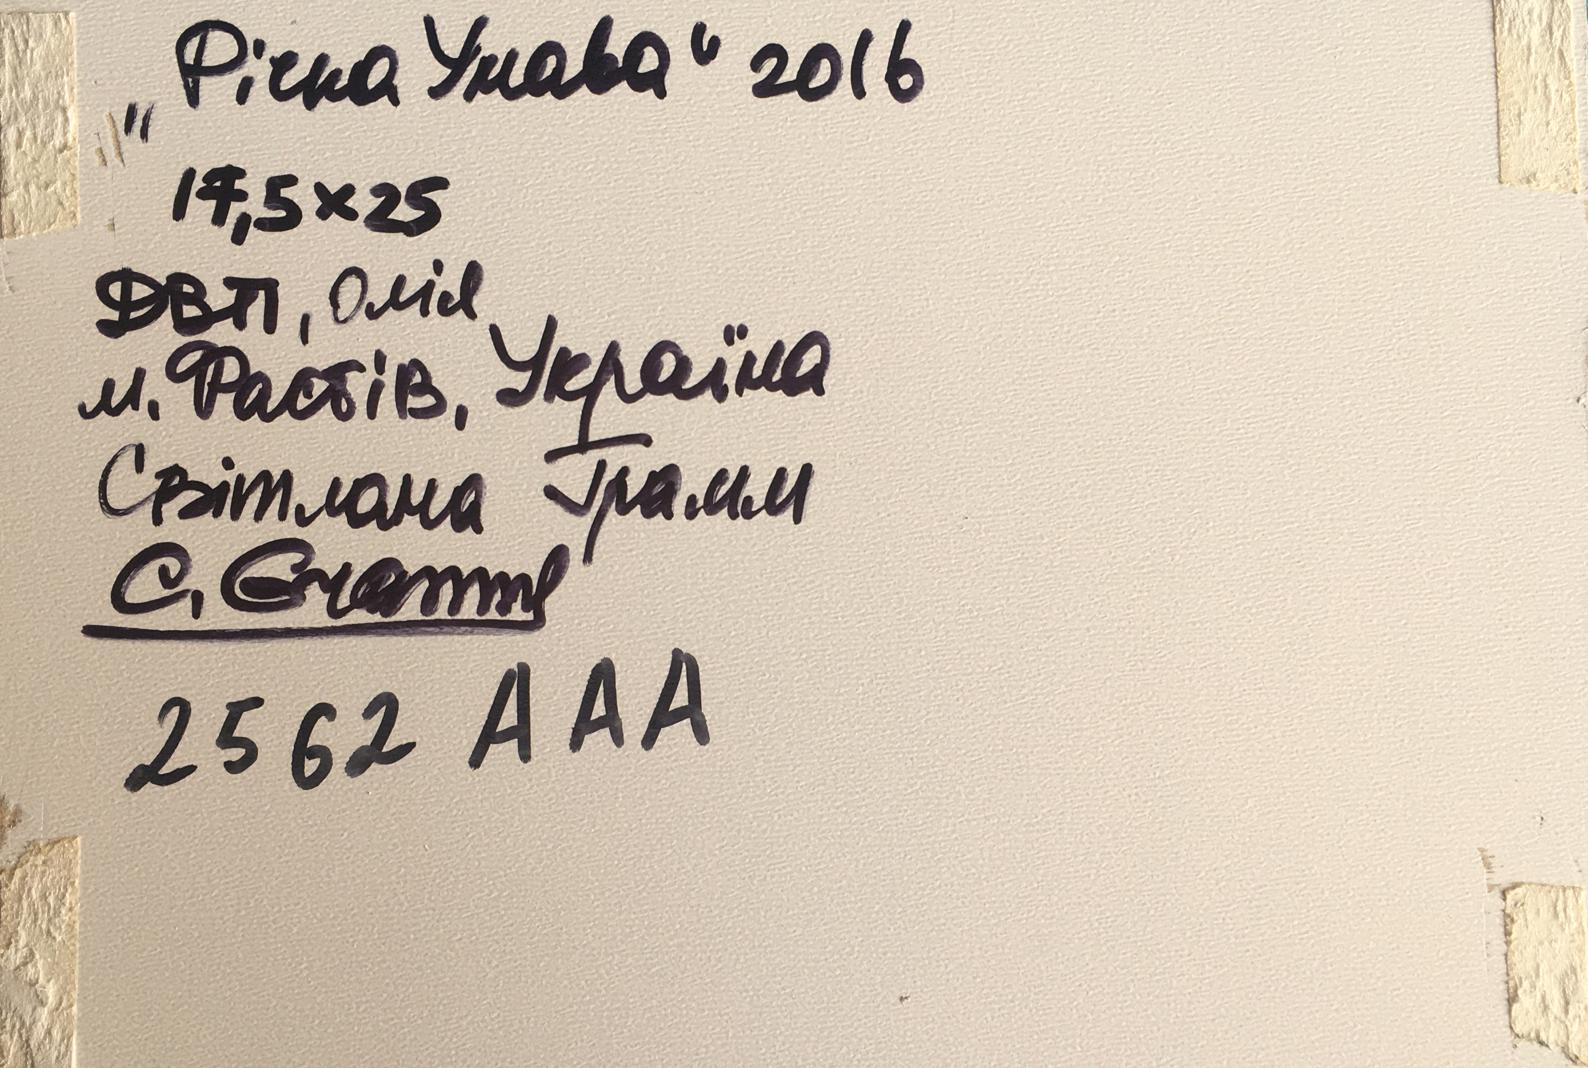 „Річка Унава“ 2016
17,5х25
ДВП, олія
м. Фастів, Україна
Світлана Грамм
С.
2562 ААА